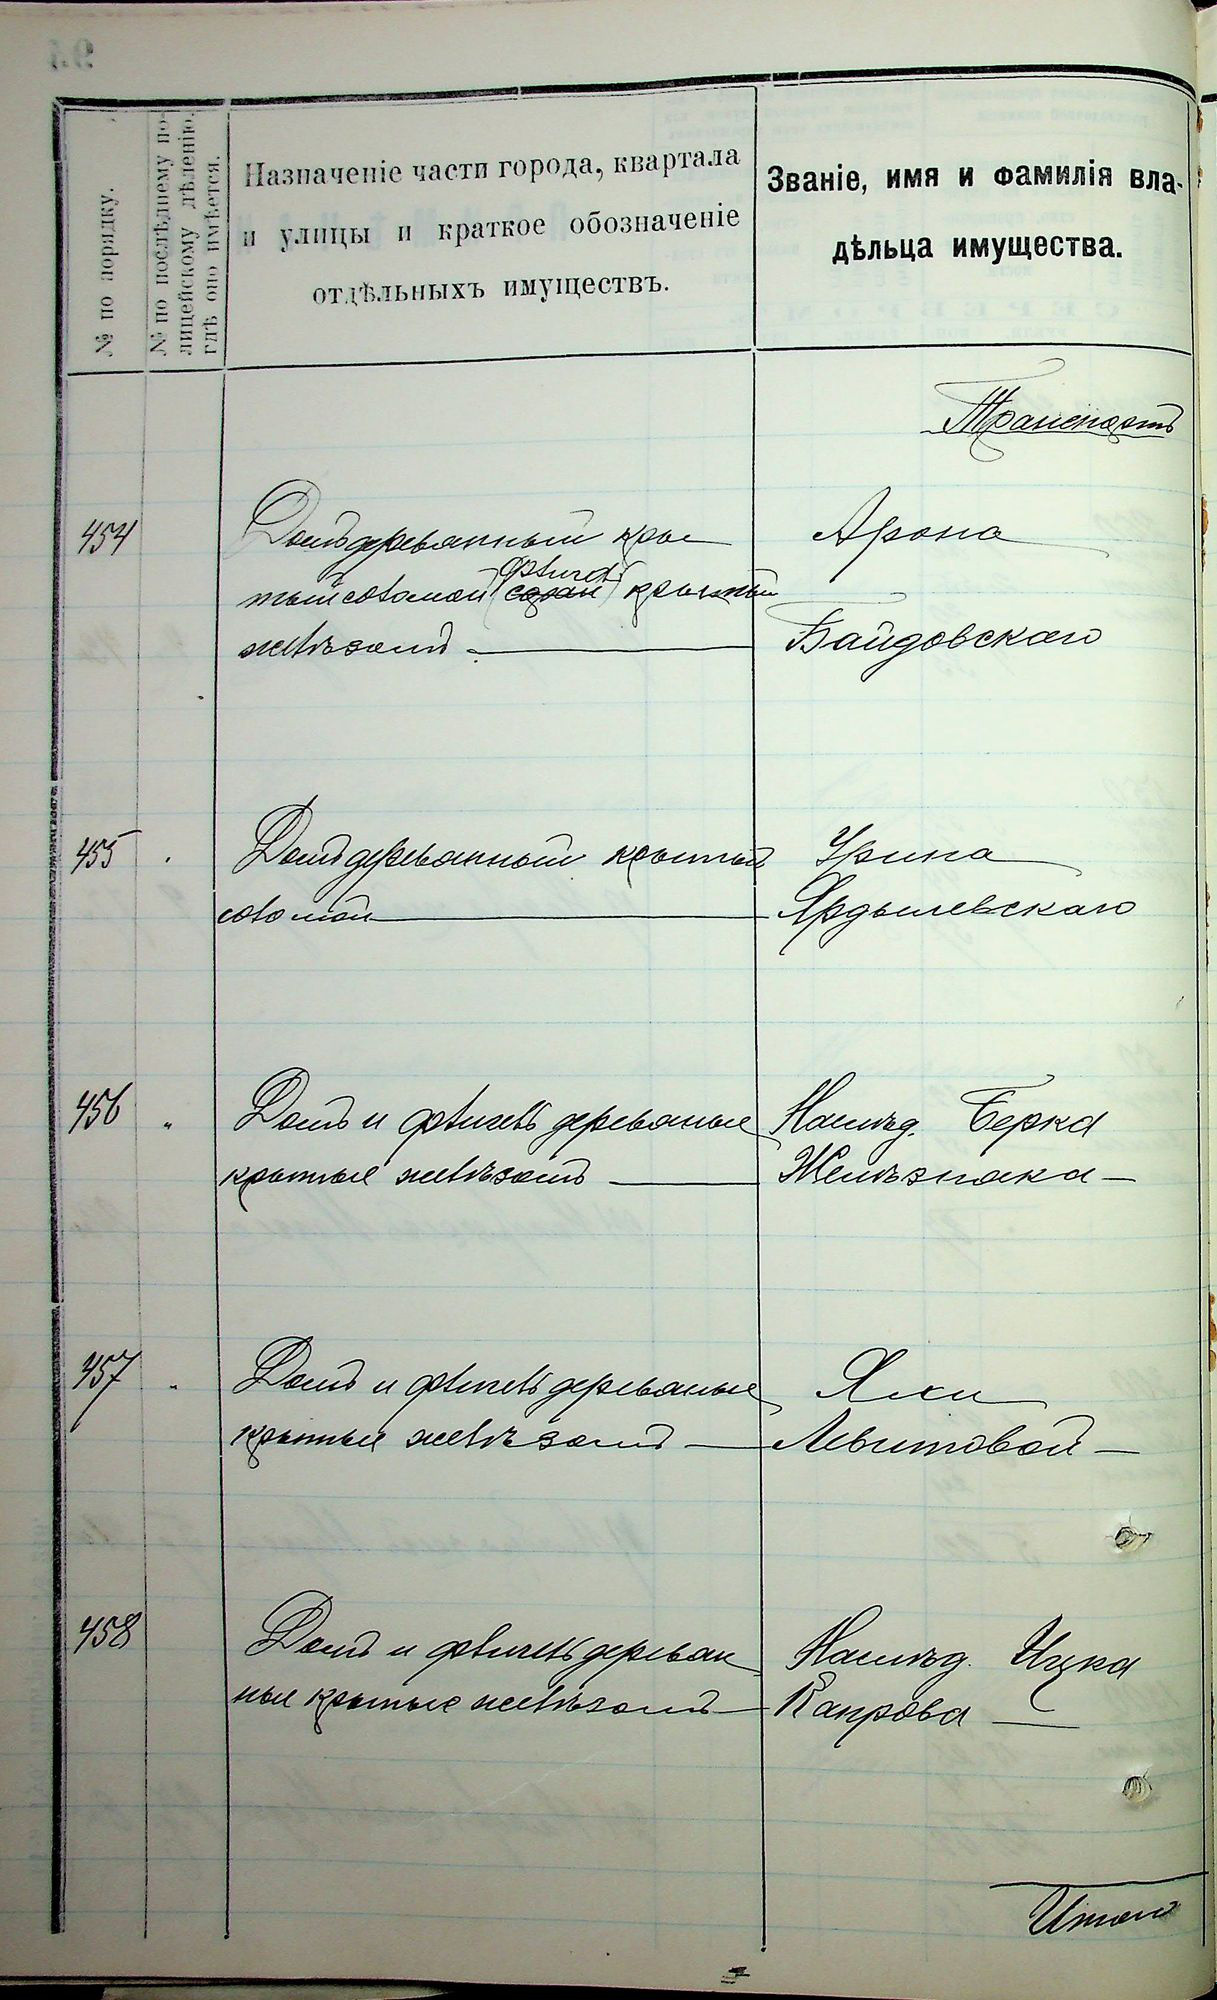 № по порядку.
№ по послѣднему по-
лицейскому дѣленію,
гдѣ оно имѣется.
Назначеніе части города, квартала
и улицы и краткое обозначеніе
отдѣльныхъ имуществъ.
Званіе, имя и фамилія вла-
дѣльца имущества.
Транспортъ
454
Домъ деревянный кры
тый соломой (сарай) крытый
флигель
желѣзомъ
Арона
Байдовскаго
455
Домъ деревянный крытый
соломой
Урина
Ярдышевскаго
456 "
Домъ и флигель деревяные
крытые желѣзомъ
Наслѣд. Берка
Желѣзняка
457 "
Домъ и флигель деревяные
крытые желѣзомъ
Яхи
Львитовой
458
Домъ и флигель деревян
ные крытые желѣзомъ
Наслѣд. Ицка
Капрова
Итого